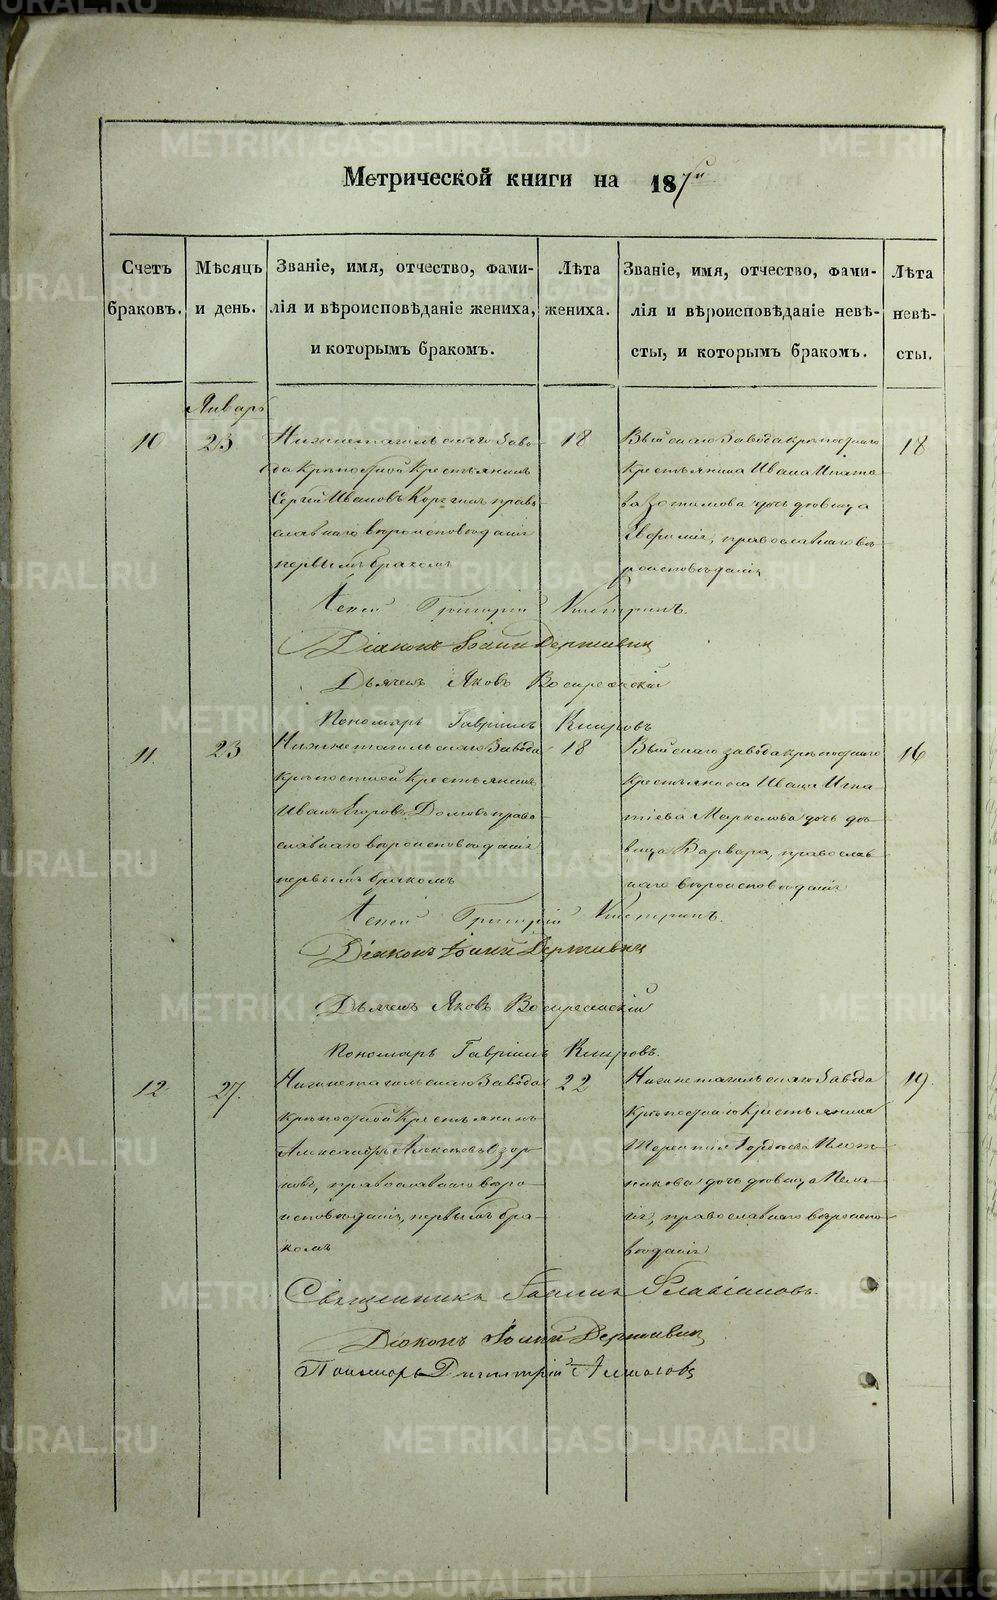 METRIKI.GASO-URAL.RU
Метрической книги на 187
Счетъ браковъ.
Мѣсяцъ и день.
Званіе, имя, отчество, фами-
лія и вѣроисповѣданіе жениха,
и которымъ бракомъ.
Лѣта жениха.
Званіе, имя, отчество, фами-
лія и вѣроисповѣданіе невѣ-
сты, и которымъ бракомъ.
Лѣта невѣ-
сты.
Январь
10
23
Нижнетагильскаго Заво-
да крѣпостной крестьянинъ
Сергѣй Ивановъ православнаго вѣроисповѣданія
первымъ бракомъ
18
Выйскаго Завода крѣпостнаго
крестьянина Ивана Игнатьева
дочь дѣвица
Евфимія, православнаго вѣ-
роисповѣданія
18
Григорій
Діаконъ Іоаннъ
Дьячекъ Яковъ Воскресенскій
Пономарь Гавріилъ Киировъ
11
23
Нижнетагильскаго Завода
крѣпостной крестьянинъ
Иванъ Егоровъ право-
славнаго вѣроисповѣданія
первымъ бракомъ
18
Выйскаго завода крѣпостнаго
крестьянина Ивана Игна-
тіева Маркелова дочь дѣ-
вица Варвара, православ-
наго вѣроисповѣданія
16
Григорій
Діаконъ Іоаннъ
Дьячекъ Яковъ Воскресенскій
Пономарь Гавріилъ Киировъ.
12
27.
Нижнетагильскаго Завода
крѣпостной крестьянинъ
Александръ
православнаго вѣро-
исповѣданія, первымъ бра-
комъ
22
Нижнетагильскаго Завода
крѣпостнаго крестьянина
Терентія Плот-
никова дочь дѣвица Пела-
гія, православнаго вѣроиспо-
вѣданія
19.
Священникъ Іоаннъ Флавіановъ.
Діаконъ Іоаннъ
Пономарь Димитрій